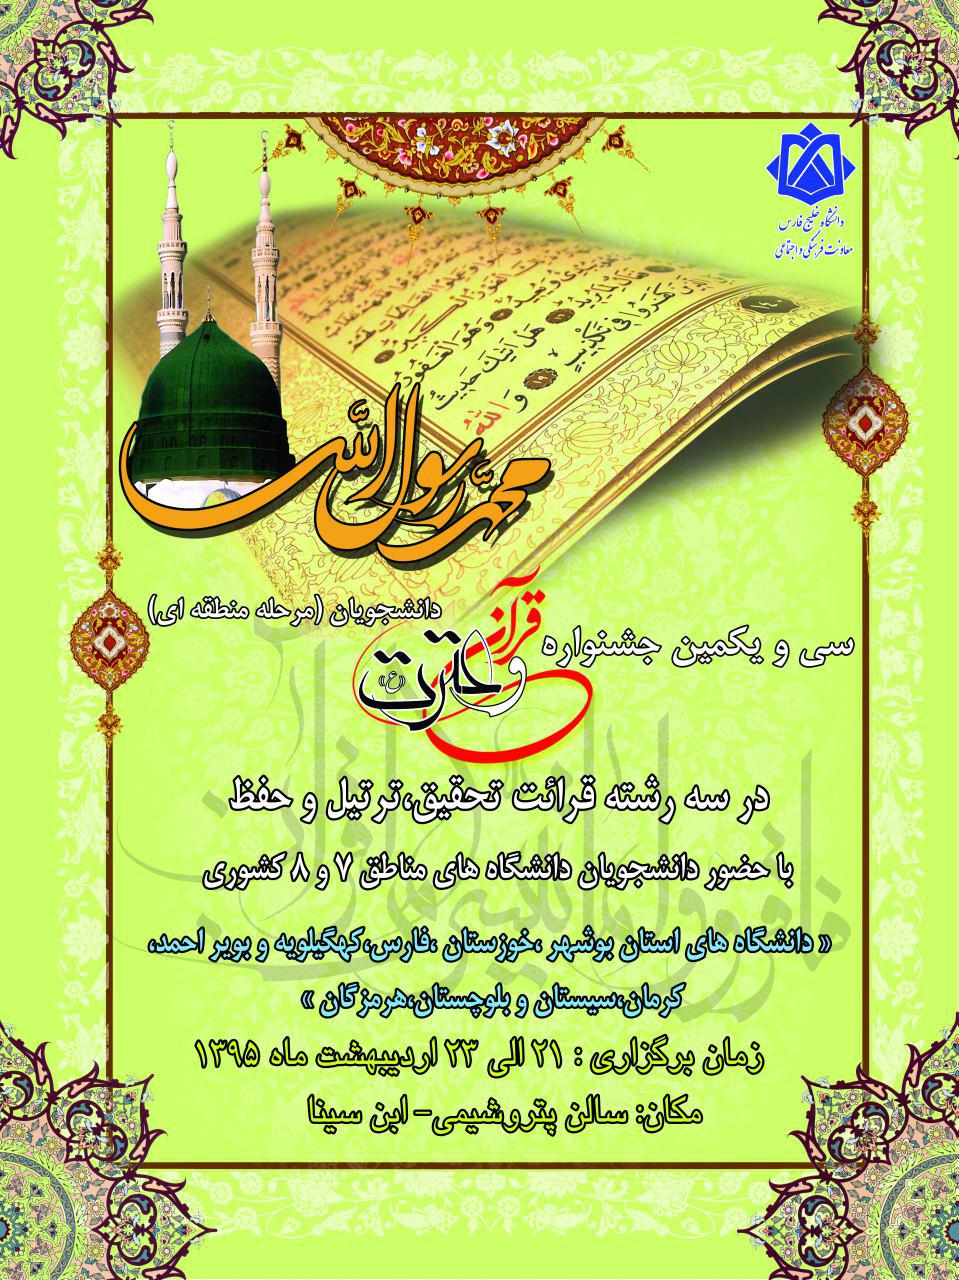 دانشگاه خلیج فارس
معاونت فرهنگی و اجتماعی
هل اتیک حدیث
محمد رسول الله
سی و یکمین جشنواره قرآن و عترت (ع) دانشجویان (مرحله منطقه ای)
در سه رشته قرائت تحقیق،ترتیل و حفظ
با حضور دانشجویان دانشگاه های مناطق ۷ و ۸ کشوری
« دانشگاه های استان بوشهر ،خوزستان ،فارس،کهگیلویه و بویر احمد،
کرمان،سیستان و بلوچستان،هرمزگان »
زمان برگزاری : ۲۱ الی ۲۳ اردیبهشت ماه ۱۳۹۵
مکان: سالن پتروشیمی- ابن سینا